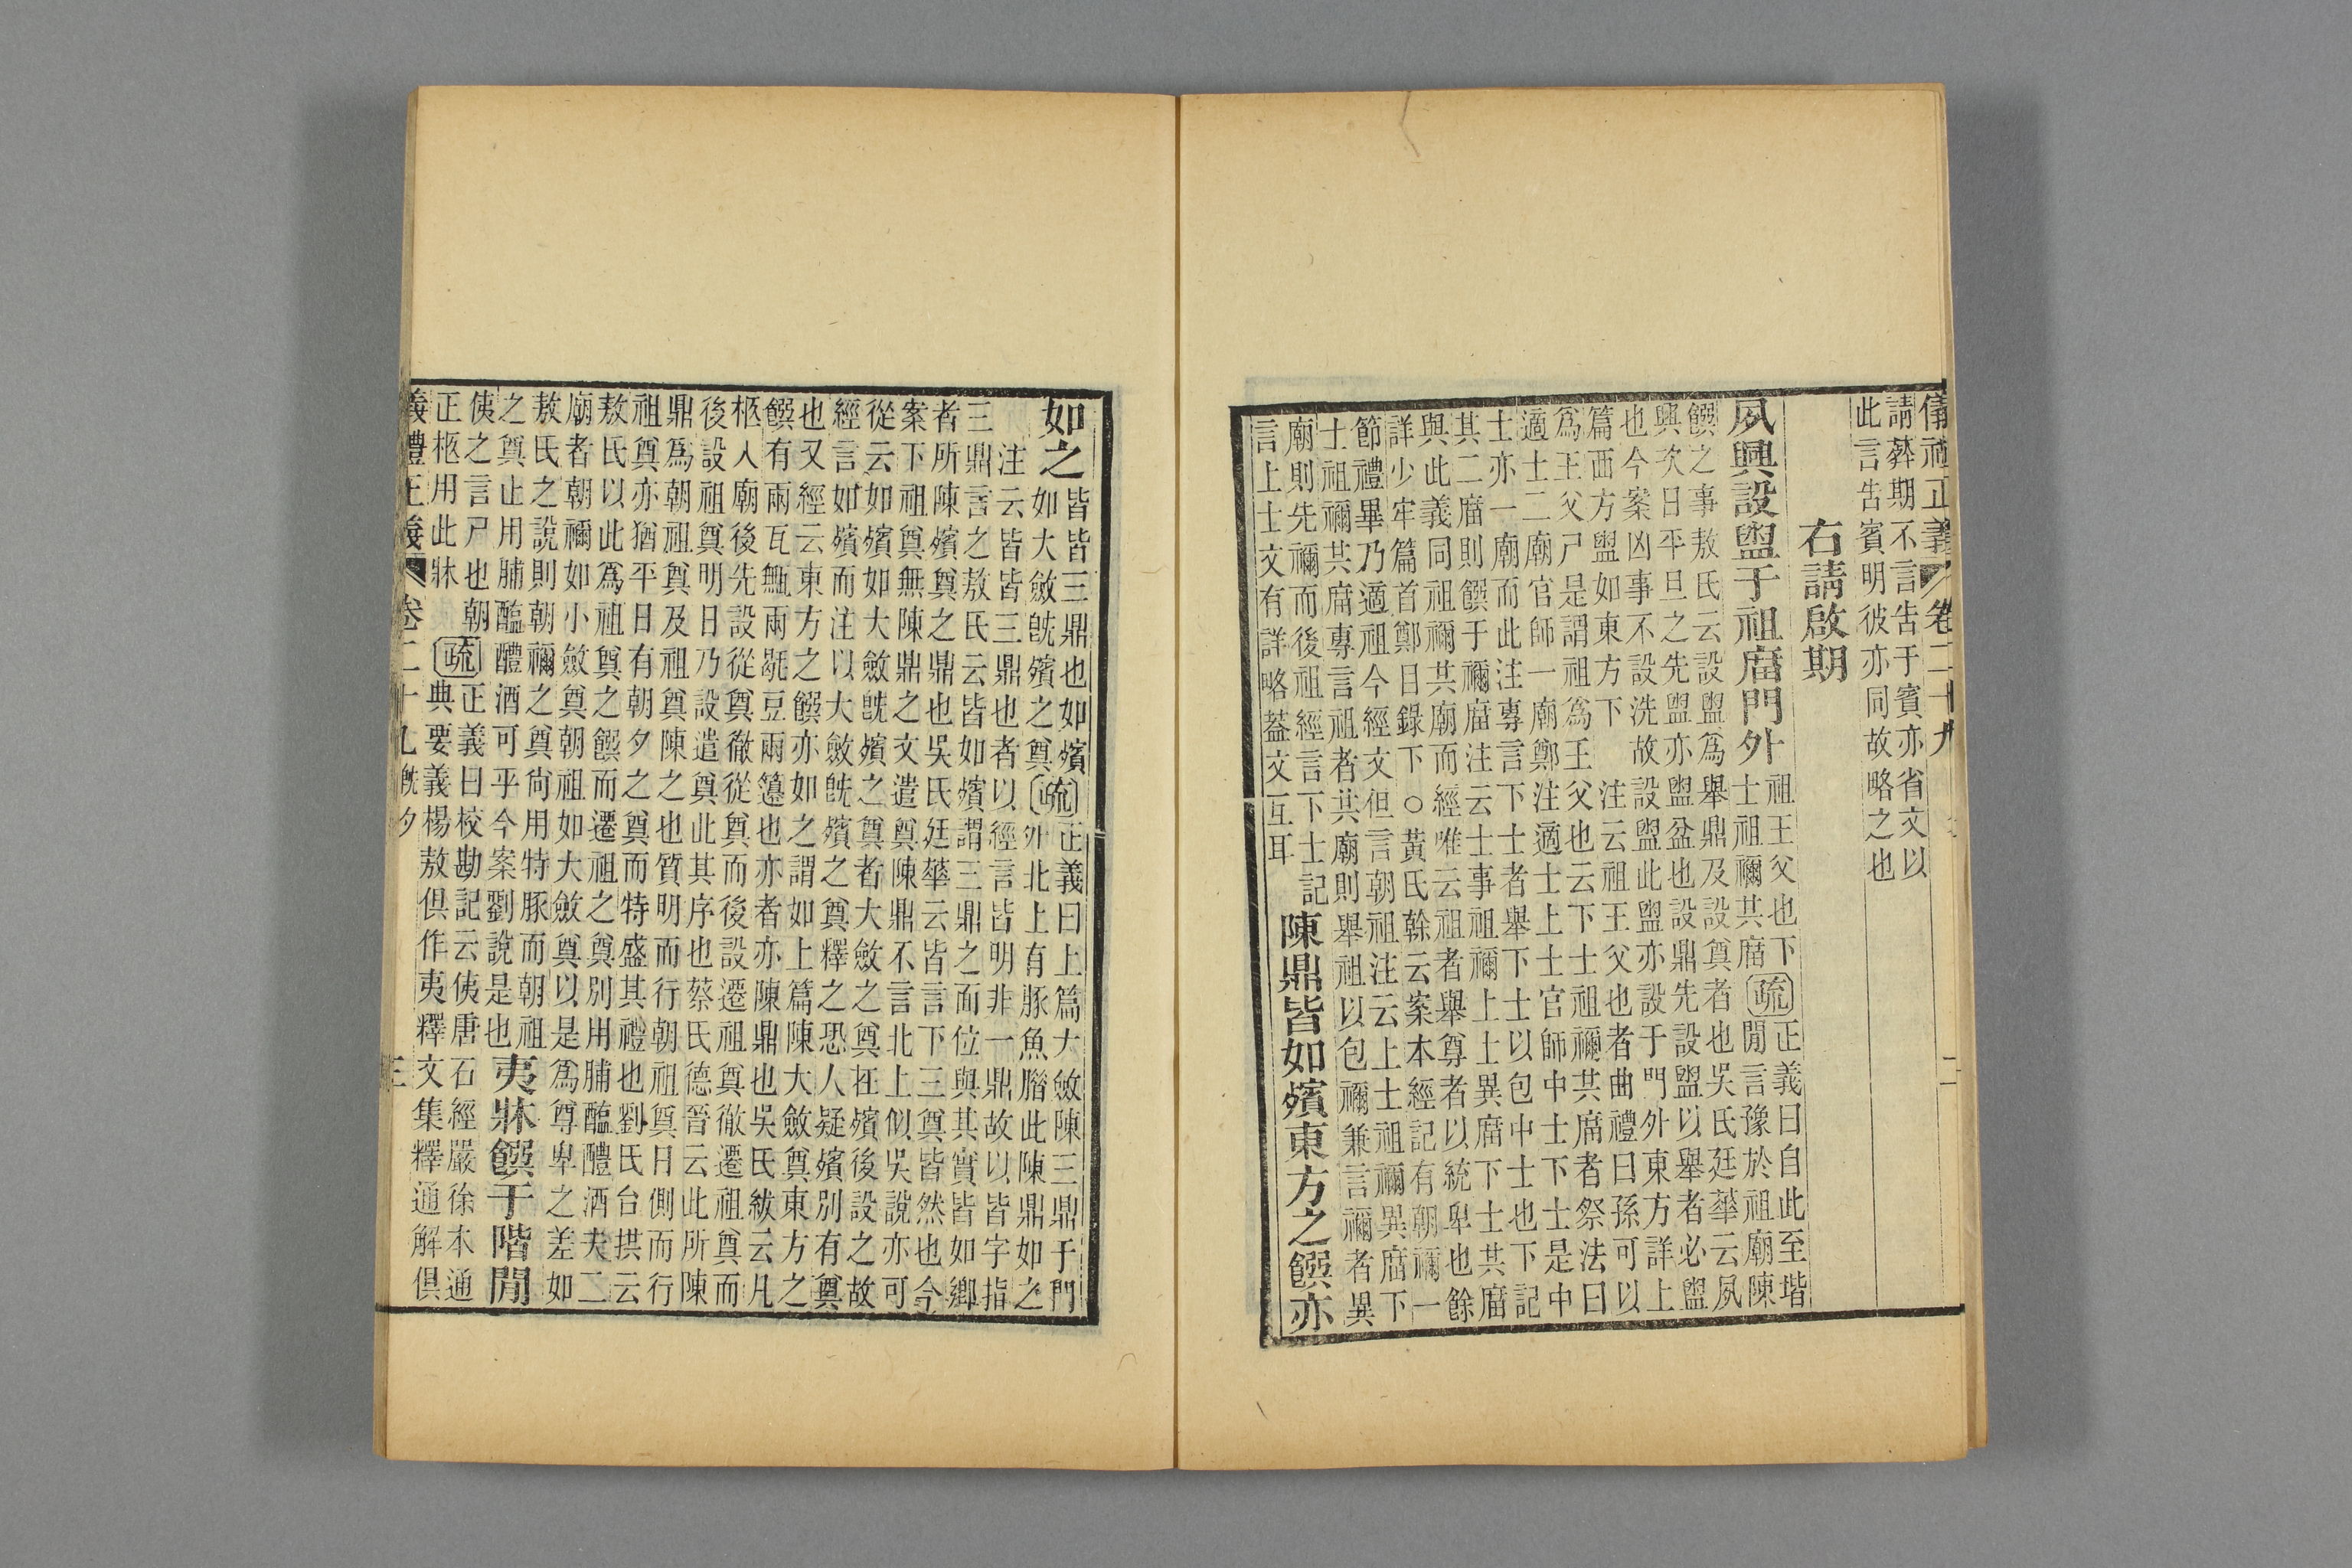 儀禮正義 卷二十九 二
請葬期不言告于賓亦省文以
此言告賓明彼亦同故略之也
右請啟期
夙興設盥于祖庿門外
祖王父也下
士祖禰共庿
疏
正義曰自此至堦
閒言豫於祖廟陳
饌之事敖氏云設盥爲舉鼎及設奠者也吳氏廷華云夙
興次日平旦之先盥亦盥盆也設鼎先設盥以舉者必盥
也今案凶事不設洗故設盥此盥亦設于門外東方詳上
篇西方盥如東方下 注云祖王父也者曲禮曰孫可以
爲王父尸是謂祖爲王父也云下士祖禰共庿者祭法曰
適士二廟官師一廟鄭注適士上士官師中士下士是中
士亦一廟而此注專言下士者舉下士以包中士也下記
其二庿則饌于禰庿注云士事祖禰上士異庿下士共庿
與此義同祖禰共廟而經唯云祖者舉尊者以統卑也餘
詳少牢篇首鄭目錄下○黃氏榦云案本經記有朝禰一
節禮畢乃適祖今經文但言朝祖注云上士祖禰異庿下
士祖禰共庿專言祖者共廟則舉祖以包禰兼言禰者異
廟則先禰而後祖經言下士記
言上士文有詳略葢文互耳
陳鼎皆如殯東方之饌亦
如之
皆皆三鼎也如殯
如大斂旣殯之奠
疏
正義曰上篇大斂陳三鼎于門
外北上有豚魚腊此陳鼎如之
注云皆皆三鼎也者以經言皆明非一鼎故以皆字指
三鼎言之敖氏云皆如殯謂三鼎之面位與其實皆如鄉
者所陳殯奠之鼎也吳氏廷華云皆言下三奠皆然也今
案下祖奠無陳鼎之文遣奠陳鼎不言北上似吳說亦可
從云如殯如大斂旣殯之奠者大斂之奠在殯後設之故
經言如殯而注以大斂旣殯之奠釋之恐人疑殯別有奠
也又經云東方之饌亦如之謂如上篇陳大斂奠東方之
饌有兩瓦甒兩毼豆兩籩也亦者亦陳鼎也吳氏紱云凡
柩入廟後先設從奠徹從奠而後設遷祖奠徹遷祖奠而
後設祖奠明日乃設遣奠此其序也蔡氏德晉云此所陳
鼎爲朝祖奠及祖奠陳之也質明而行朝祖奠日側而行
祖奠亦猶平日有朝夕之奠而特盛其禮也劉氏台拱云
敖氏以此爲祖奠之饌而遷祖之奠別用脯醢醴酒夫二
廟者朝禰如小斂奠朝祖如大斂奠以是爲尊卑之差如
敖氏之說則朝禰之奠尙用特豚而朝祖
之奠止用脯醢醴酒可乎今案劉說是也
夷牀饌于階閒
侇之言尸也朝
正柩用此牀
疏
正義曰校勘記云侇唐石經嚴徐本通
典要義楊敖俱作夷釋文集釋通解俱
義禮正義 卷二十九 旣夕 三